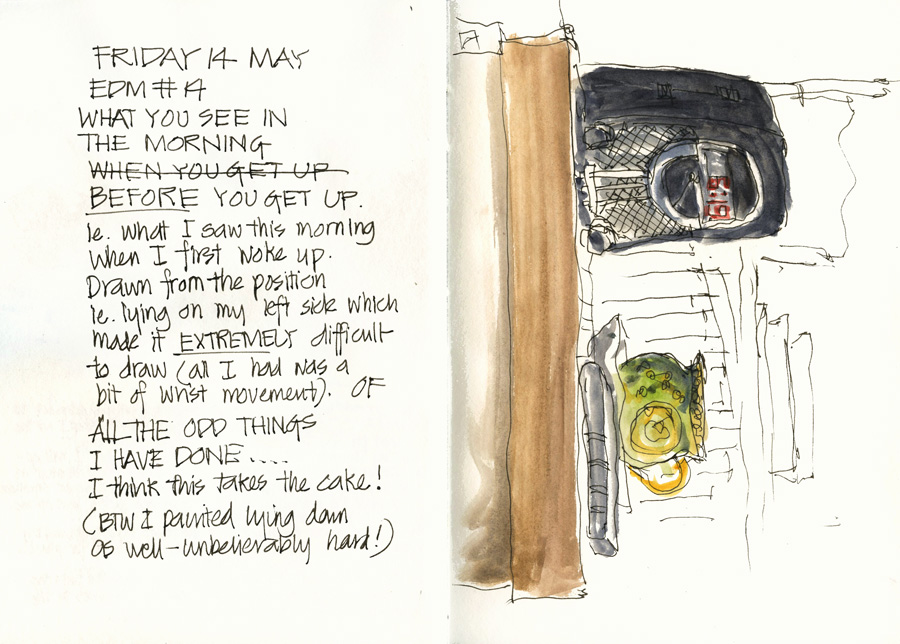 FRIDAY 14 MAY
EDM #14
WHAT YOU SEE IN
THE MORNING
WHEN YOU GET UP
BEFORE YOU GET UP.
ie. what I saw this morning
when I first woke up.
Drawn from the position
ie. lying on my left side which
made it EXTREMELY difficult
to draw (all I had was a
bit of wrist movement). OF
ALL THE ODD THINGS
I HAVE DONE....
I think this takes the cake!
(BTW I painted lying down
as well-unbelievably hard!)